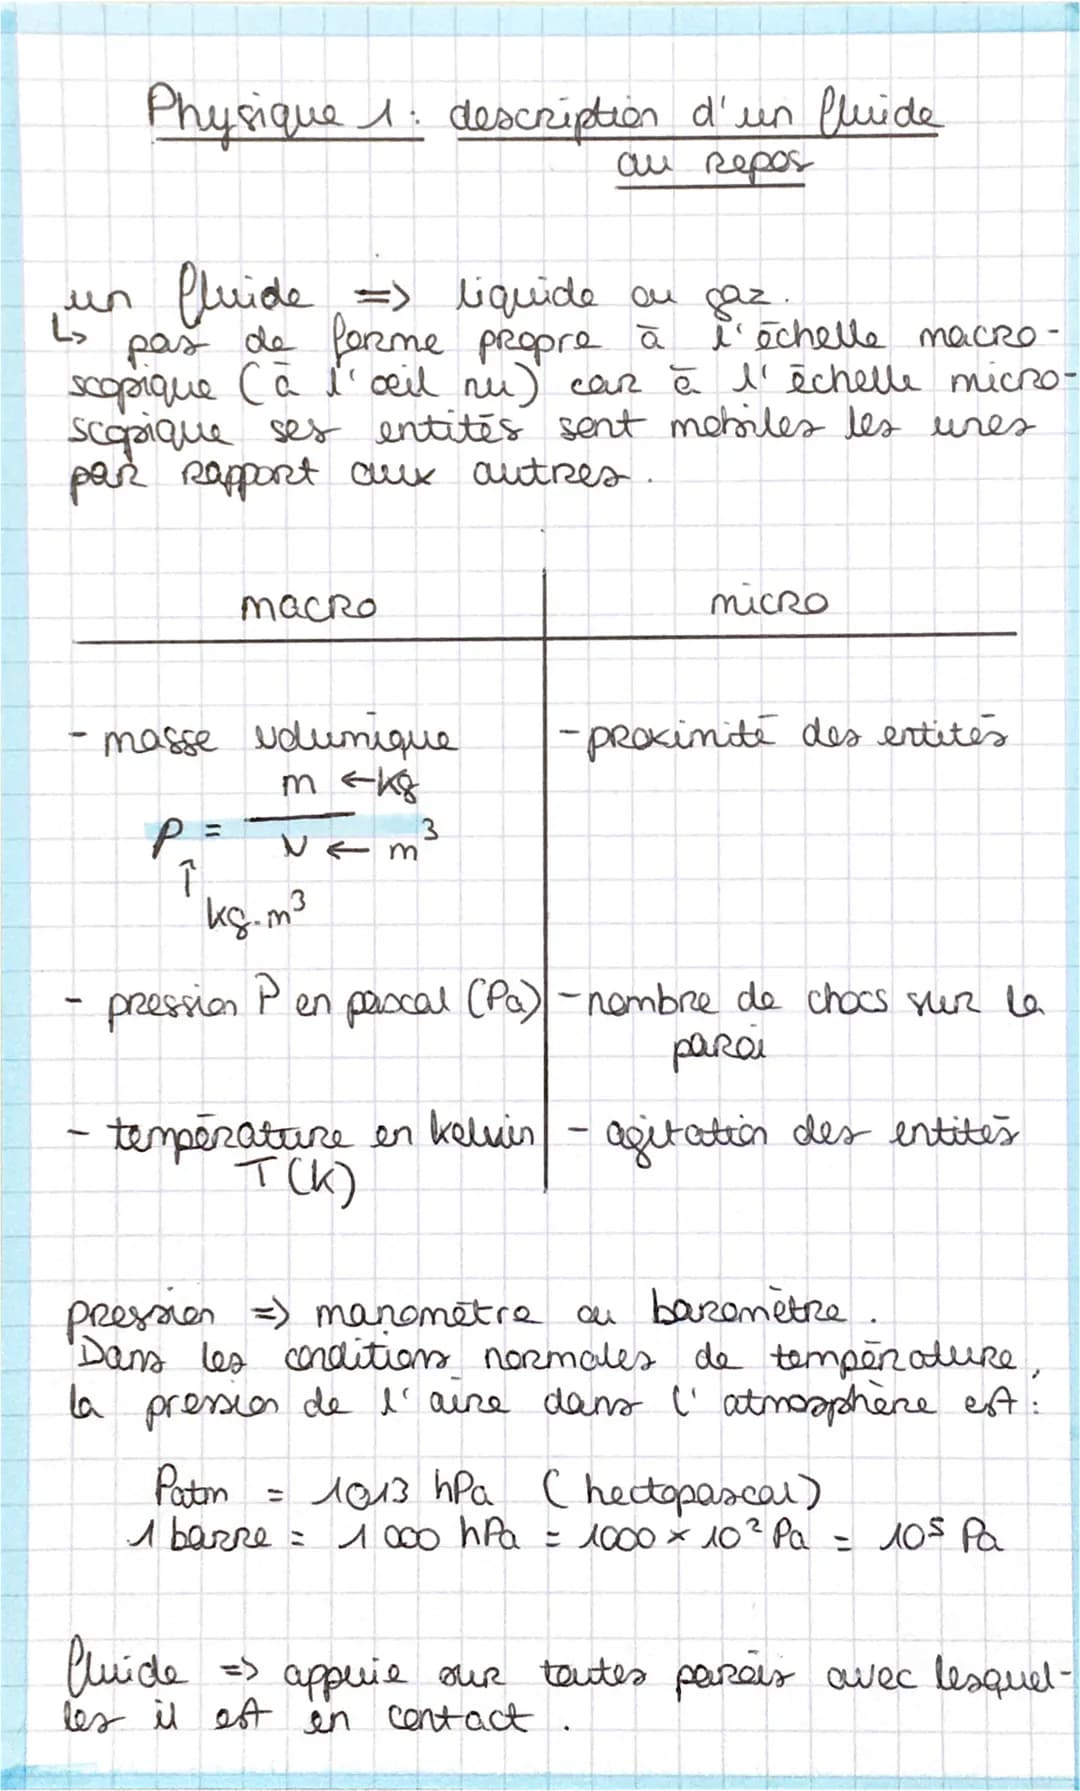 Physique 1: description d'un fluide
au repos
un fluide => liquide ou gaz.
↳ pas de forme propre à l'échelle macro-
scopique (à l'oeil nu) car à l'échelle micro-
scopique ses entités sont mobiles les unes
par rapport aux autres.
macro
micro
- masse volumique
- proximité des entités
m ← kg
ρ =
V ← m³
↑
kg.m³
- pression P en pascal (Pa)
- nombre de chocs sur la
paroi
- température en kelvin
T (K)
- agitation des entités
pression => manomètre ou baromètre.
Dans les conditions normales de température,
la pression de l'aire dans l'atmosphère est :
Patm = 1013 hPa (hectopascal)
1 barre = 1 000 hPa = 1000 × 10² Pa = 10⁵ Pa
fluide => appuie sur toutes parois avec lesquel-
les il est en contact.